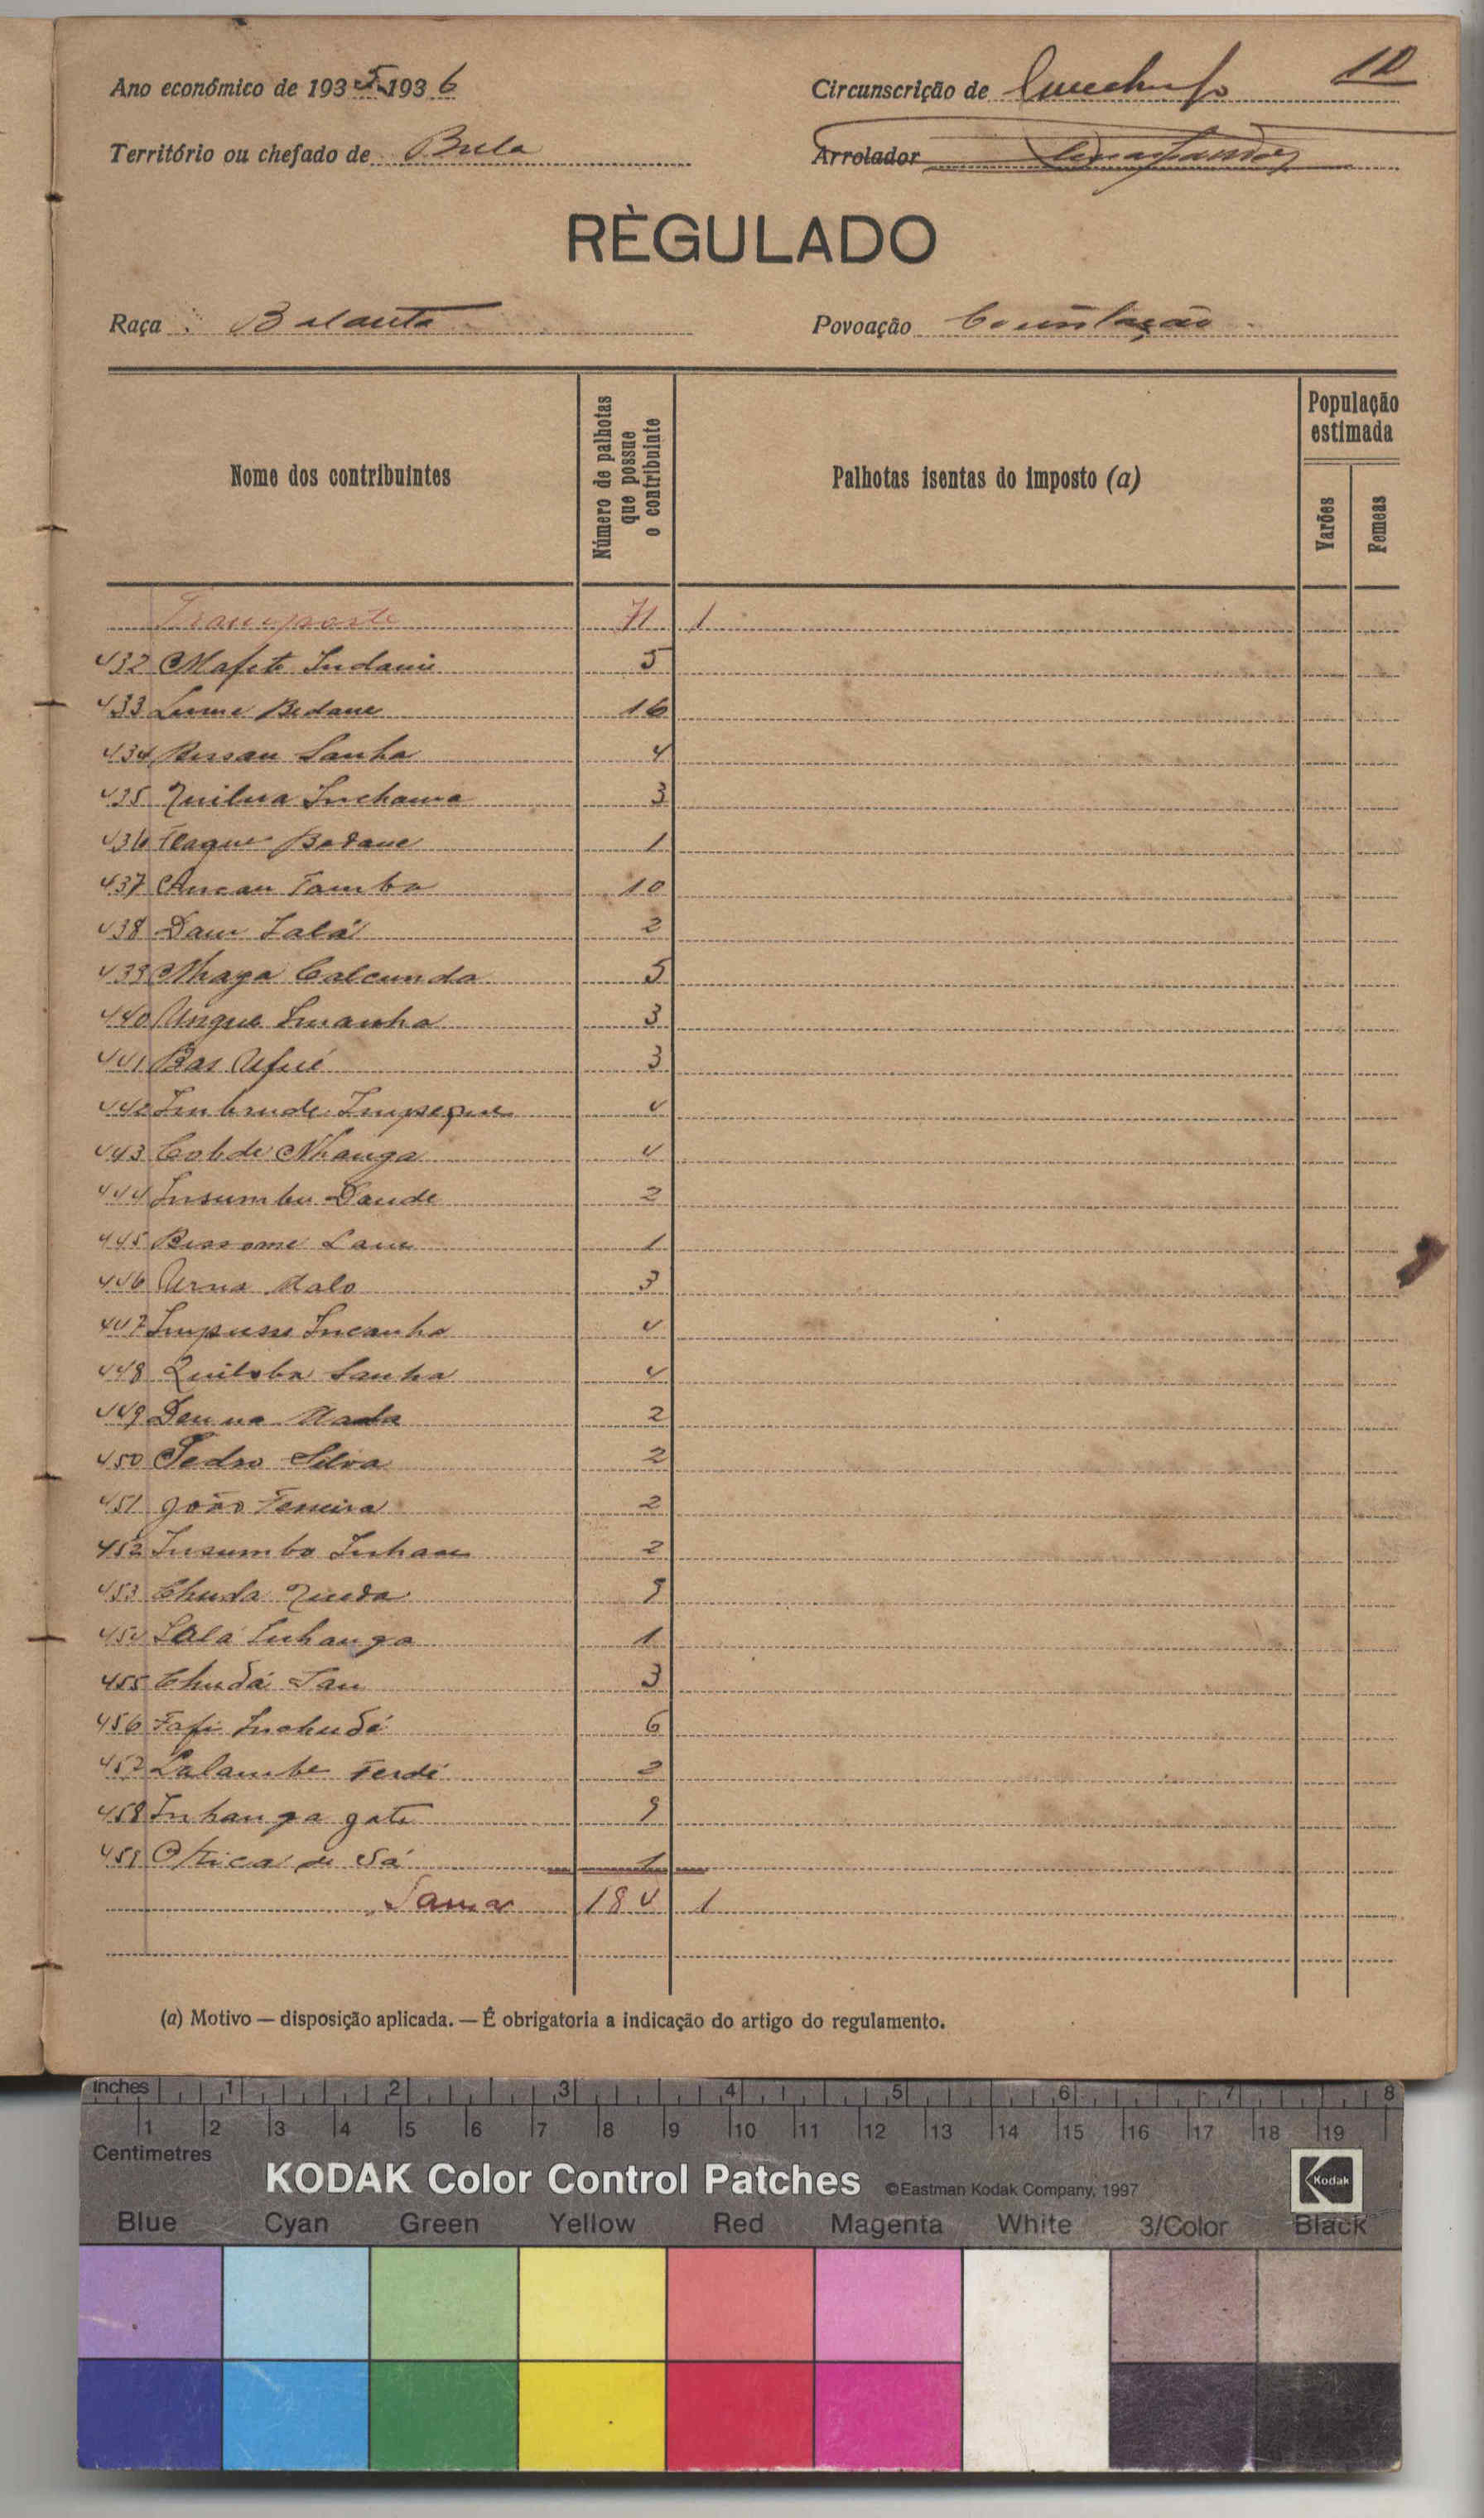 Ano económico de 1935-1936
Circunscrição de
10
Território ou chefado de Bula
Arrolador
RÈGULADO
Raça Balanta
Povoação
Nome dos contribuintes
Número de palhotas que possue o contribuinte
Palhotas isentas do imposto (a)
População estimada
Varões
Femeas
Transporte 71 1
432 Mafete Indami 5
433 Bedane 16
434 Bissau Sanha 4
435 Inchama 3
436 Bedane 1
437 Tamba 10
438 Dam Lalá 2
439 Nhaga Calcunda 5
440 Ungue Imanha 3
441 Bas Ufué 3
442 Imbunde 4
443 Cobde Nhanga 4
444 Insumbu Dande 2
445 Bissome 1
446 Urna Nalo 3
447 Impusse Incanha 4
448 Quiloba Sanha 4
449 Nada 2
450 Pedro Silva 2
451 João Ferreira 2
452 Insumbo 2
453 Chuda 9
454 Lalá Inhanga 1
455 Chudá 3
456 Fafi Inchudá 6
457 Lalambe Ferdé 2
458 Inhanga gate 9
459 de Sá 1
Soma 184 1
(a) Motivo — disposição aplicada. — É obrigatoria a indicação do artigo do regulamento.
inches 1 2 3 4 5 6 7 8
1 2 3 4 5 6 7 8 9 10 11 12 13 14 15 16 17 18 19
Centimetres
KODAK Color Control Patches ©Eastman Kodak Company, 1997 Kodak
Blue Cyan Green Yellow Red Magenta White 3/Color Black